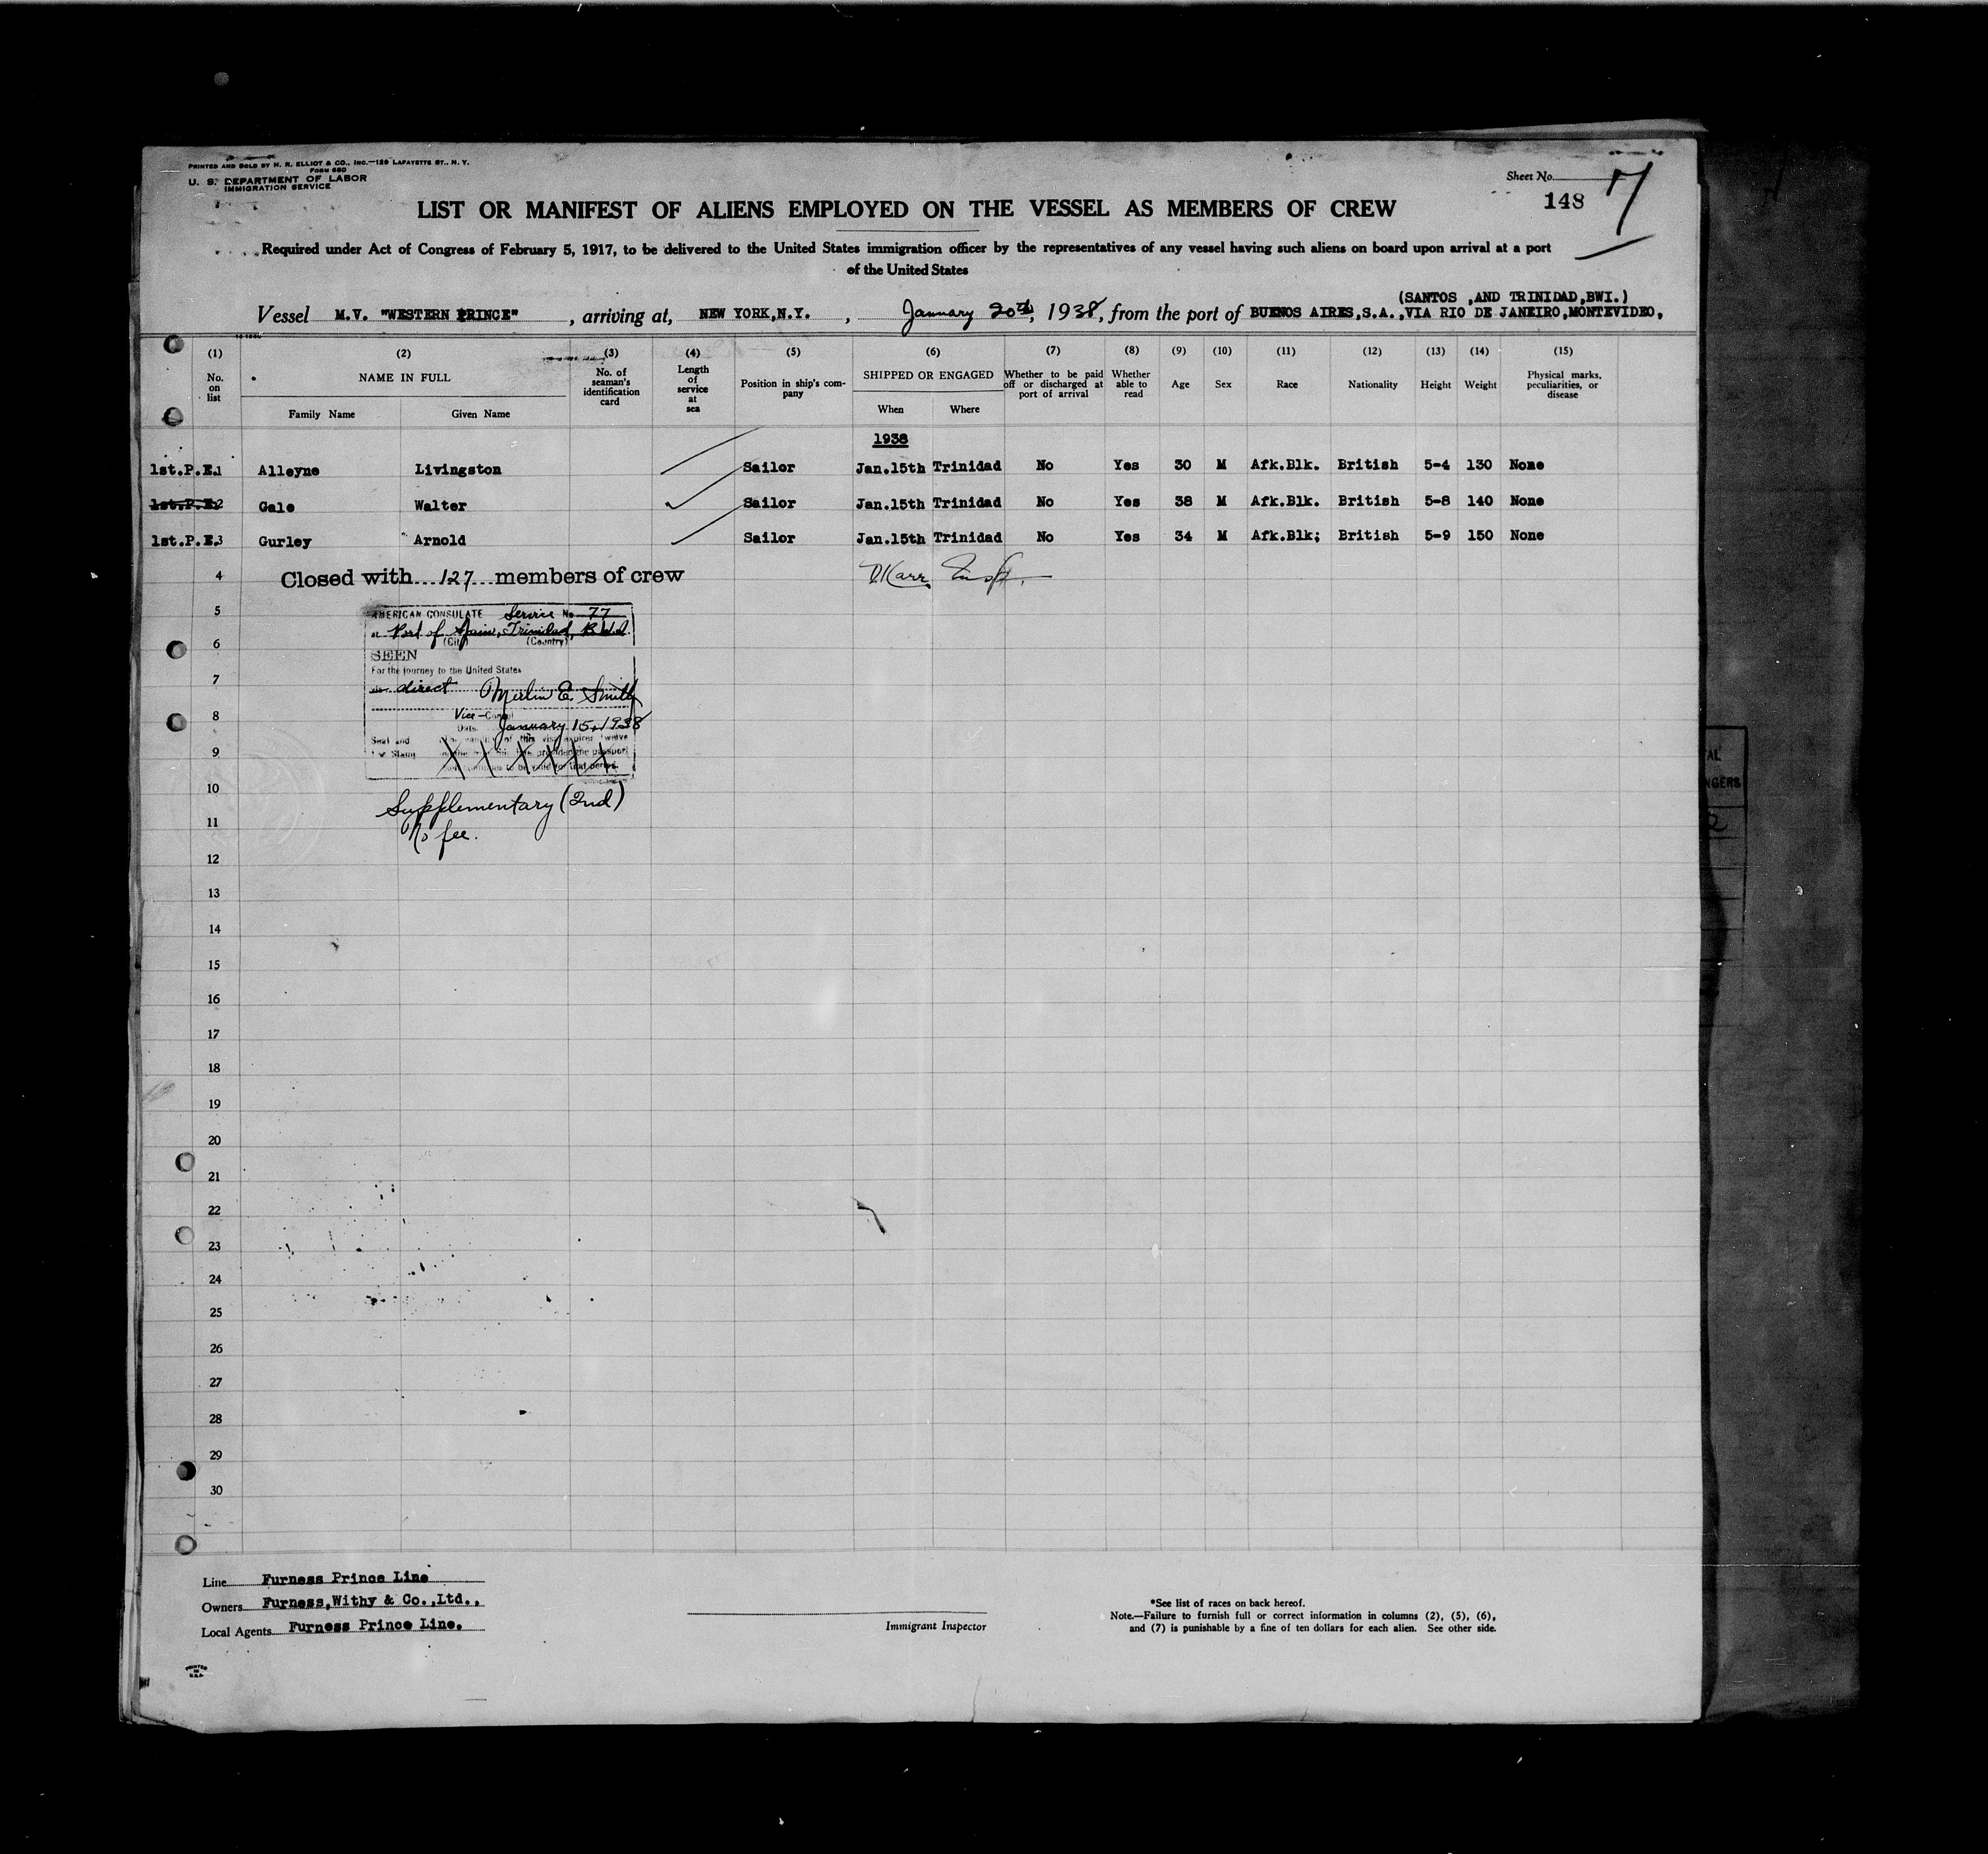 PRINTED AND SOLD BY H. R. ELLIOT & CO., INC.—129 LAFAYETTE ST., N. Y.
FORM 680
U. S. DEPARTMENT OF LABOR
IMMIGRATION SERVICE
Sheet No.
148 7
LIST OR MANIFEST OF ALIENS EMPLOYED ON THE VESSEL AS MEMBERS OF CREW
Required under Act of Congress of February 5, 1917, to be delivered to the United States immigration officer by the representatives of any vessel having such aliens on board upon arrival at a port
of the United States
(SANTOS ,AND TRINIDAD,BWI.)
Vessel M.V. "WESTERN PRINCE" , arriving at, NEW YORK,N.Y. , January 20th, 1938, from the port of BUENOS AIRES,S.A.,VIA RIO DE JANEIRO,MONTEVIDEO,
(1) (2) (3) (4) (5) (6) (7) (8) (9) (10) (11) (12) (13) (14) (15)
No. on list NAME IN FULL Family Name Given Name No. of seaman's identification card Length of service at sea Position in ship's company SHIPPED OR ENGAGED When Where Whether to be paid off or discharged at port of arrival Whether able to read Age Sex Race Nationality Height Weight Physical marks, peculiarities, or disease
1938
1st.P.E.1 Alleyne Livingston Sailor Jan.15th Trinidad No Yes 30 M Afk.Blk. British 5-4 130 None
1st.P.E.2 Gale Walter Sailor Jan.15th Trinidad No Yes 38 M Afk.Blk. British 5-8 140 None
1st.P.E.3 Gurley Arnold Sailor Jan.15th Trinidad No Yes 34 M Afk.Blk; British 5-9 150 None
4 Closed with 127 members of crew Karr Insp.
AMERICAN CONSULATE Service No 77
5
at Port of Spain, Trinidad, B.W.I.
6 (City) (Country)
SEEN
For the journey to the United States
7
via direct Merlin E. Smith
8 Vice-Consul
Date January 15, 1938
Seal and
9
10
Supplementary (2nd)
11 No fee.
12
13
14
15
16
17
18
19
20
21
22
23
24
25
26
27
28
29
30
Line Furness Prince Line
Owners Furness,Withy & Co.,Ltd.,
Local Agents Furness Prince Line.
Immigrant Inspector
*See list of races on back hereof.
Note.—Failure to furnish full or correct information in columns (2), (5), (6),
and (7) is punishable by a fine of ten dollars for each alien. See other side.
PRINTED
IN
U.S.A.